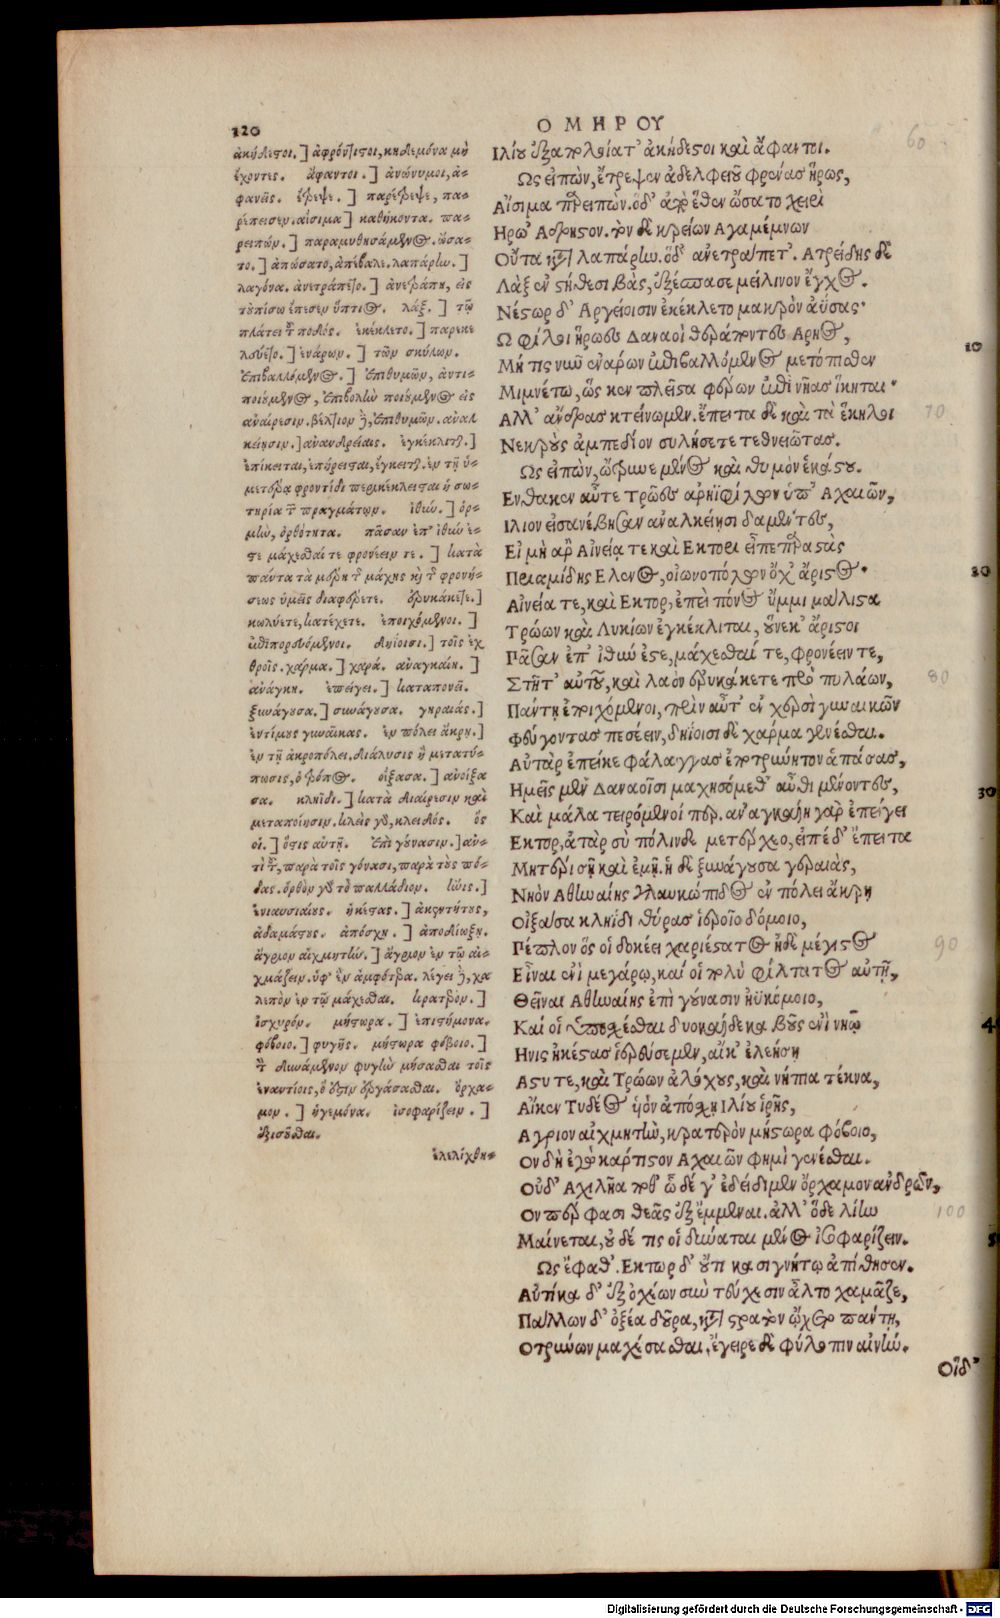 120
ΟΜΗΡΟΥ
ἀκήδεστοι.] ἀφρόντιστοι, κηδεμόνα μὴ
ἔχοντες. ἄφαντοι.] ἀνώνυμοι, ἀ-
φανεῖς. ἔτρεψε.] παρέτρεψε, πα-
ρέπεισεν. αἴσιμα] καθήκοντα. πα-
ρειπών.] παραμυθησάμενος. ὤσα-
το.] ἀπώσατο, ἀπέβαλε. λαπάρην.]
λαγόνα. ἀνετράπετο.] ἀνετράπη, εἰς
τοὐπίσω ἔπεσεν ὕπτιος. λάξ.] τῷ
πλάτει τοῦ ποδός. ἐκέκλετο.] παρεκε
λεύετο.] ἐνάρων.] τῶν σκύλων.
ἐπιβαλλόμενος.] ἐπιθυμῶν, ἀντι-
ποιούμενος, ἐπιβολὴν ποιούμενος εἰς
ἀναίρεσιν. βέλτιον δὲ, ἐπιθυμῶν. ἀναλ
κείῃσιν.] ἀνανδρείαις. ἐγκέκλιται.]
ἐπίκειται, ἐπήρεισται, ἔγκειται. ἐν τῇ ὑ-
μετέρᾳ φροντίδι περικέκλεισται ἡ σω-
τηρία τῶν πραγμάτων. ἰθύν.] ὁρ-
μὴν, ὀρθότητα. πᾶσαν ἐπ' ἰθύν ἐ-
στε μάχεσθαί τε φρονέειν τε.] κατὰ
πάντα τὰ μέρη τῆς μάχης καὶ τῆς φρονή-
σεως ὑμεῖς διαφέρετε. ἐρυκάκετε.]
κωλύετε, κατέχετε. ἐποιχόμενοι.]
ἐπιπορευόμενοι. δηίοισι.] τοῖς ἐχ
θροῖς. χάρμα.] χαρά. ἀναγκαίη.]
ἀνάγκη. ἐπείγει.] καταπονεῖ.
ξυνάγουσα.] συνάγουσα. γηραιάς.]
ἐντίμους γυναῖκας. ἐν πόλει ἄκρῃ.]
ἐν τῇ ἀκροπόλει. διάλυσις ἢ μετατύ-
πωσις, ὁ τρόπος. οἴξασα.] ἀνοίξα
σα. κληῖδι.] κατὰ διαίρεσιν καὶ
μεταποίησιν. κλεὶς γὰρ, κλειδός. ὅς
οἱ.] ὅστις αὐτῇ. ἐπὶ γούνασιν.] ἀν-
τὶ τοῦ, παρὰ τοῖς γόνασι, παρὰ τοὺς πό-
δας. ὀρθὸν γὰρ τὸ παλλάδιον. ἤνις.]
ἐνιαυσιαίους. ἠκέστας.] ἀκεντήτους,
ἀδαμάστους. ἀπόσχῃ.] ἀποδιώξῃ.
ἄγριον αἰχμητήν.] ἄγριον ἐν τῷ αἰ-
χμάζειν. ὑφ' ἓν ἀμφότερα. λέγει δὲ, χα
λεπὸν ἐν τῷ μάχεσθαι. κρατερόν.]
ἰσχυρόν. μήστωρα.] ἐπιστήμονα.
φόβοιο.] φυγῆς. μήστωρα φόβοιο.]
τὸν δυνάμενον φυγὴν μήσασθαι τοῖς
ἐναντίοις, ὅ ἐστιν ἐργάσασθαι. ὄρχα-
μον.] ἡγεμόνα. ἰσοφαρίζειν.]
ἐξισοῦσθαι.
ἐλελίχθη-
Ιλίου ἐξαπολοίατ' ἀκήδεστοι καὶ ἄφαντοι.
Ως εἰπὼν, ἔτρεψεν ἀδελφειοῦ φρένας ἥρως,
Αἴσιμα παρειπών. ὁδ' ἀπὸ ἕθεν ὤσατο χειρὶ
Ηρω' Αδρηστον. τὸν δὲ κρείων Αγαμέμνων
Οὖτα κατὰ λαπάρην. ὁδ' ἀνετράπετ'. Ατρείδης δὲ
Λὰξ ἐν στήθεσι βὰς, ἐξέσπασε μείλινον ἔγχος.
Νέστωρ δ' Αργείοισιν ἐκέκλετο μακρὸν ἀΰσας·
Ω φίλοι ἥρωες Δαναοὶ θεράποντες Αρηος,
Μή τις νυῦ ἐνάρων ἐπιβαλλόμενος μετόπισθεν
Μιμνέτω, ὥς κεν πλεῖστα φέρων ἐπὶ νῆας ἵκηται·
Αλλ' ἄνδρας κτείνωμεν. ἔπειτα δὲ καὶ τὰ ἕκηλοι
Νεκροὺς ἀμπεδίον συλήσετε τεθνειῶτας.
Ως εἰπὼν, ὤτρυνε μένος καὶ θυμὸν ἑκάστου.
Ενθακεν αὖτε Τρῶες ἀρηϊφίλων ὑπ' Αχαιῶν,
Ιλιον εἰσανέβησαν ἀναλκείῃσι δαμέντες,
Εἰ μὴ ἄρ' Αἰνείᾳ τε καὶ Εκτορι εἶπε παραστὰς
Πριαμίδης Ελενος, οἰωνοπόλων ὄχ' ἄριστος.
Αἰνεία τε, καὶ Εκτορ, ἐπεὶ πόνος ὔμμι μάλιστα
Τρώων καὶ Λυκίων ἐγκέκλιται, οὕνεκ' ἄριστοι
Πᾶσαν ἐπ' ἰθύν ἐστε, μάχεσθαί τε, φρονέειν τε,
Στῆτ' αὐτοῦ, καὶ λαὸν ἐρυκάκετε πρὸ πυλάων,
Πάντῃ ἐποιχόμενοι, πρὶν αὖτ' ἐν χερσὶ γυναικῶν
Φεύγοντας πεσέειν, δηΐοισι δὲ χάρμα γενέσθαι.
Αὐτὰρ ἐπείκε φάλαγγας ἐποτρύνητον ἁπάσας,
Ημεῖς μὲν Δαναοῖσι μαχησόμεθ' αὖθι μένοντες,
Καὶ μάλα τειρόμενοί περ. ἀναγκαίη γὰρ ἐπείγει
Εκτορ, ἀτὰρ σὺ πόλινδε μετέρχεο, εἰπέ δ' ἔπειτα
Μητέρι σῇ καὶ ἐμῇ. ἡ δὲ ξυνάγουσα γεραιὰς,
Νηὸν Αθηναίης γλαυκώπιδος ἐν πόλει ἄκρῃ
Οἴξασα κληῖδι θύρας ἱεροῖο δόμοιο,
Πέπλον ὅς οἱ δοκέει χαριέστατος ἠδὲ μέγιστος
Εἶναι ἐνὶ μεγάρῳ, καί οἱ πολὺ φίλτατος αὐτῇ,
Θεῖναι Αθηναίης ἐπὶ γούνασιν ἠϋκόμοιο,
Καί οἱ ὑποσχέσθαι δυοκαίδεκα βοῦς ἐνὶ νηῷ
Ηνις ἠκέστας ἱερευσέμεν, αἴκ' ἐλεήσῃ
Αστυ τε, καὶ Τρώων ἀλόχους, καὶ νήπια τέκνα,
Αἴκεν Τυδέος υἱὸν ἀπόσχῃ Ιλίου ἱρῆς,
Αγριον αἰχμητὴν, κρατερὸν μήστωρα φόβοιο,
Ον δὴ ἐγὼ κάρτιστον Αχαιῶν φημὶ γενέσθαι.
Οὐδ' Αχιλῆα ποθ' ὧδέ γ' ἐδείδιμεν ὄρχαμον ἀνδρῶν,
Ον περ φασι θεᾶς ἐξέμμεναι. ἀλλ' ὅδε λίην
Μαίνεται, οὐδέ τις οἱ δύναται μένος ἰσοφαρίζειν.
Ως ἔφαθ'. Εκτωρ δ' οὔτι κασιγνήτῳ ἀπίθησεν.
Αὐτίκα δ' ἐξ ὀχέων σὺν τεύχεσιν ἆλτο χαμᾶζε,
Πάλλων δ' ὀξέα δοῦρα, κατὰ στρατὸν ᾤχετο πάντῃ,
Οτρύνων μαχέσασθαι, ἔγειρε δὲ φύλοπιν αἰνήν.
Οἵδ'
10
20
30
60
70
80
90
100
Digitalisierung gefördert durch die Deutsche Forschungsgemeinschaft - DFG